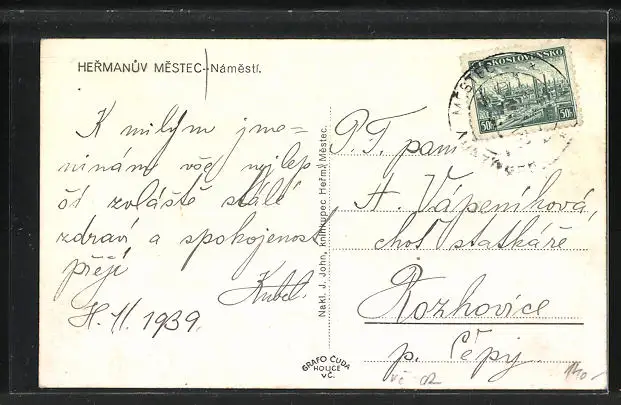 HEŘMANŮV MĚSTEC--Náměstí.
K milým jme=
ninám vše nejlep
ší zvláště stálé
zdraví a spokojenost
přejí
Kubel.
1939.
Nakl. J. John, knihkupec Heřm. Městec.
GRAFO ČUDA
HOLICE
V.Č.
ČESKOSLOVENSKO
50h 50h
P.T. paní
A. Vápeníková,
choť statkáře
Rozhovice
p. Čépy.